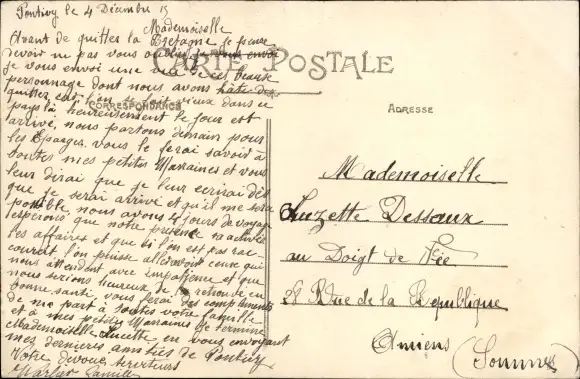 Pontivy le 4 Décembre 15
Mademoiselle
Avant de quitter la Bretagne je pense
devoir ne pas vous oublier je vous envoi
je vous envoi une vue de ces beaux
personnage dont nous avons hâte de
quitter, car l'on se fait vieux dans ce
pays là heureusement le jour est
arrivé, nous partons demain pour
les Eparges. vous le ferai savoir à
toutes mes petites Marraines et vous
leur dirai que je leur ecrirai dès
que je serai arrivé et qu'il me sera
possible, nous avons 4 jours de voyage
espérons que notre présence activera
les affaires et que si l'on est pas
l'on puisse aller voir ceux qui
nous attendent avec impatience et que
nous serions heureux de retrouvé en
bonne santé, vous ferai des compliments
de ma part à toutes votre famille
et à mes petites Marraines. Je termine
Mademoiselle Lucette en vous envoyant
mes dernières amitiés de Pontivy
Votre dévoué serviteurs
Camille
CARTE POSTALE
CORRESPONDANCE
ADRESSE
Mademoiselle
Luzette Dessaux
au Doigt de Fée
28 Rue de la République
Amiens
(Somme)